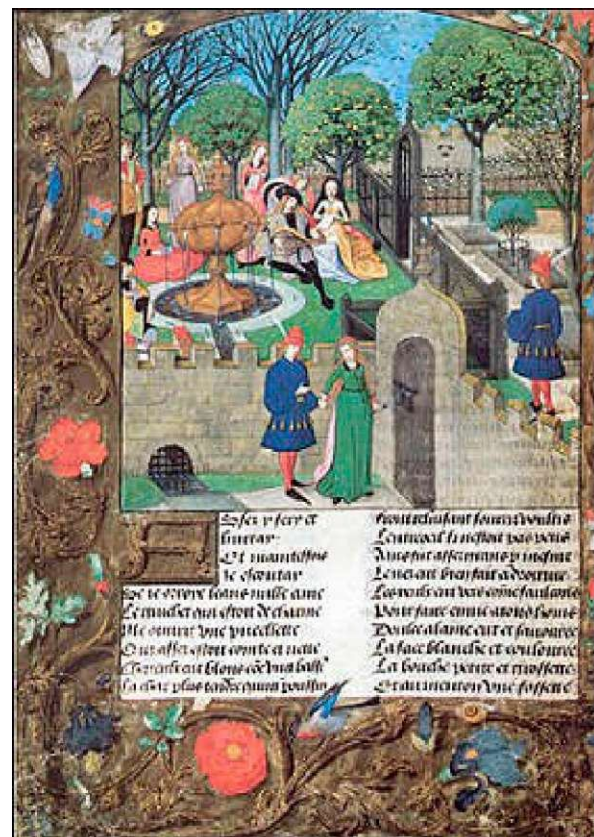 Assez y fery et
hurtay
Et maintesfois
je escoutay
Se je leans nulle ame
Le guichet qui estoit de charme
Me ouvrit une pucellette
Qui assez estoit cointe et nette
Cheveulx eut blons come ung
La char plus tendre poussin
Front reluisant sourcilz voultis
si nestoit pas
Le nez eut bien fait a droiture
Les yeulx eut vers come faulcons
Pour faire envie
Doulce alaine eut et savouree
La face blanche et coulouree
La bouche petite et grossette
Et au menton une fossette